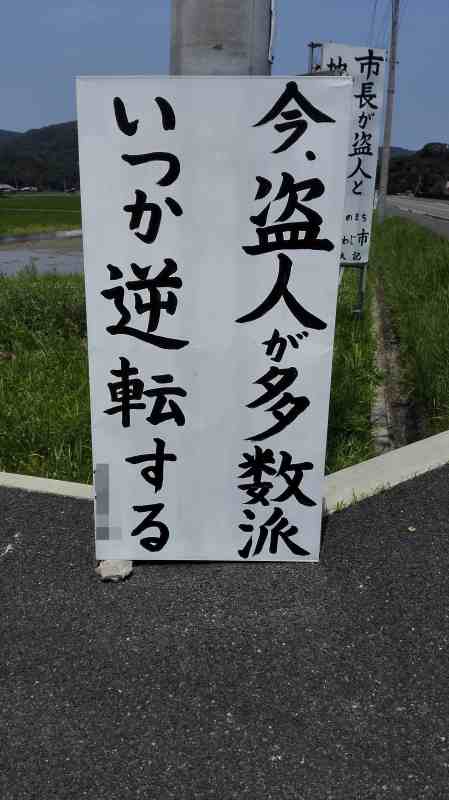 今、盗人が多数派
いつか逆転する
市長が盗人と